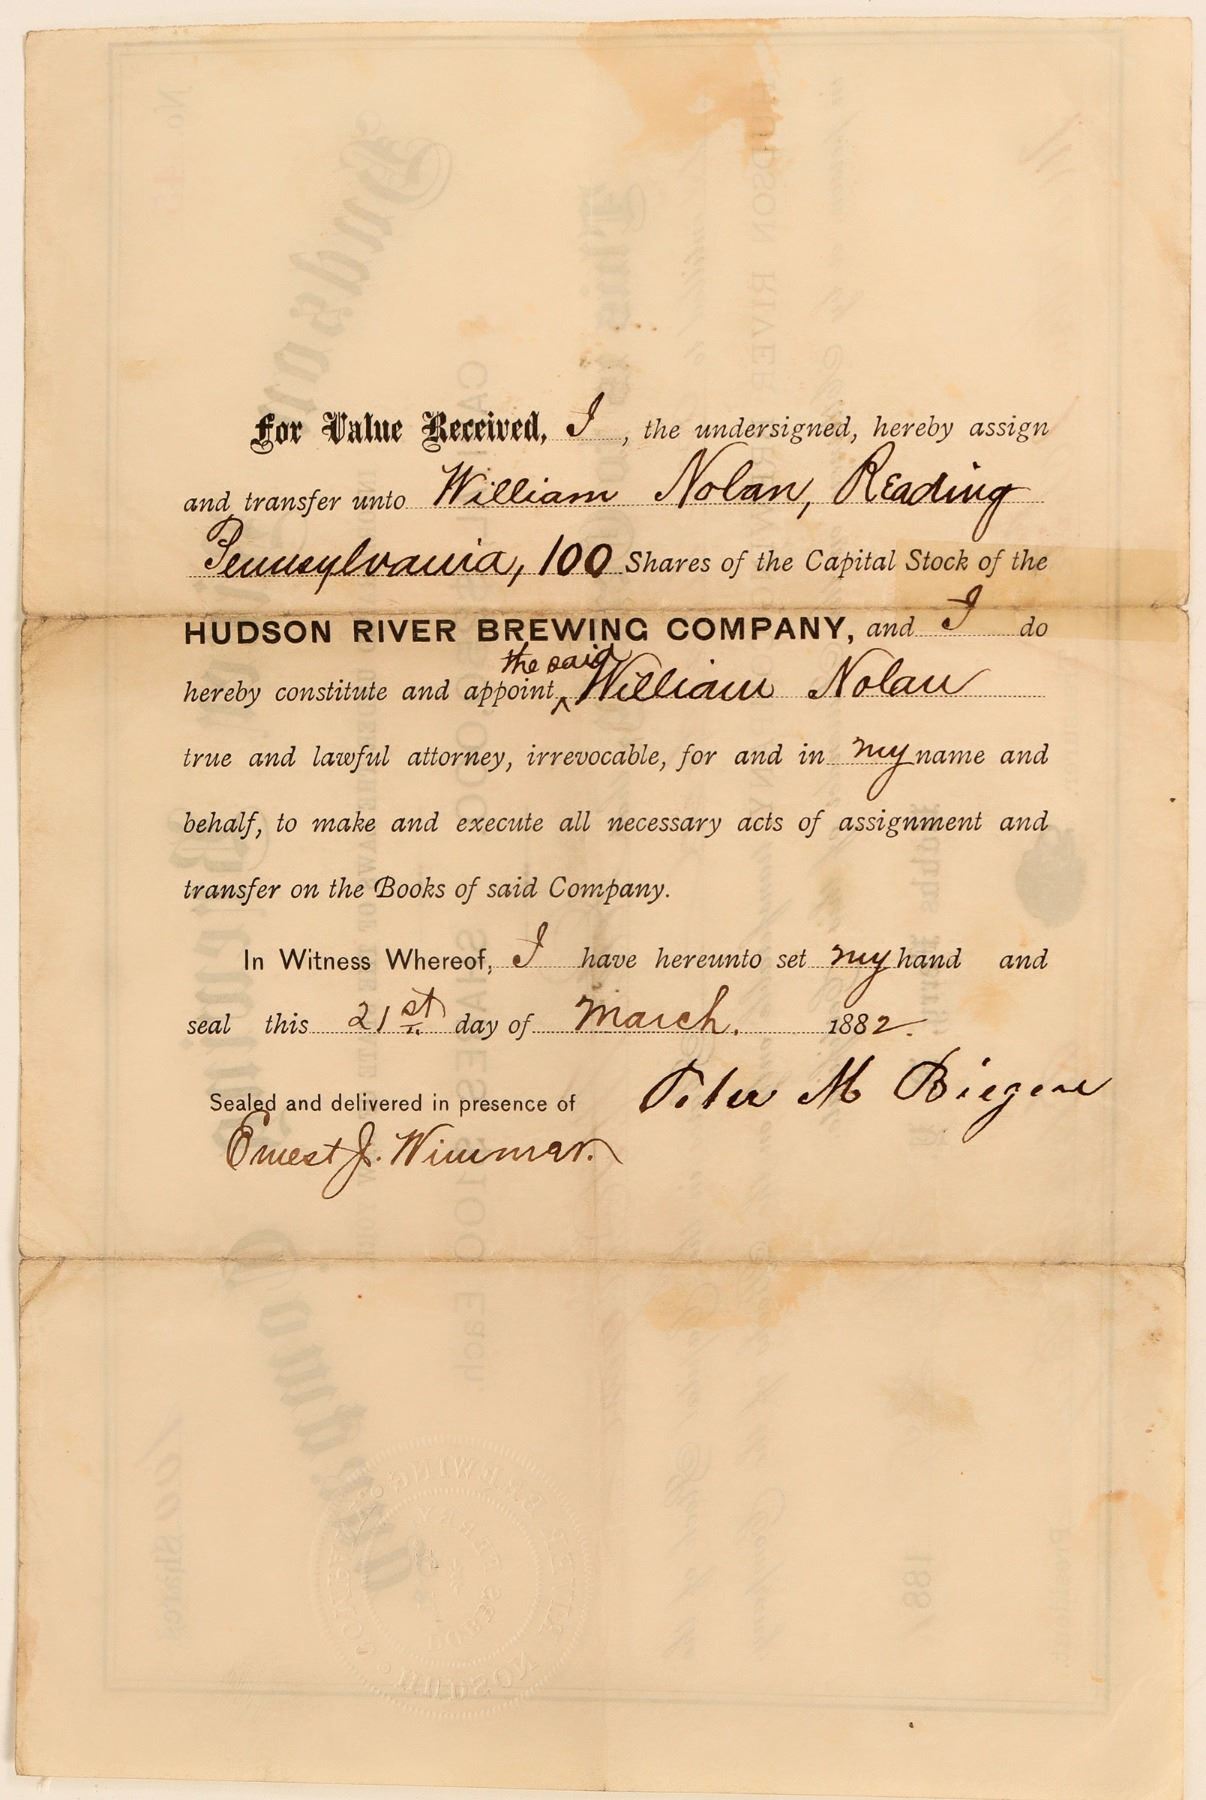 For Value Received, I, the undersigned, hereby assign
and transfer unto William Nolan, Reading
Pennsylvania, 100 Shares of the Capital Stock of the
HUDSON RIVER BREWING COMPANY, and I do
the said
hereby constitute and appoint ^ William Nolan
true and lawful attorney, irrevocable, for and in my name and
behalf, to make and execute all necessary acts of assignment and
transfer on the Books of said Company.
In Witness Whereof, I have hereunto set my hand and
seal this 21st day of March. 1882.
Sealed and delivered in presence of Peter M
Ernest J. Wimmer.